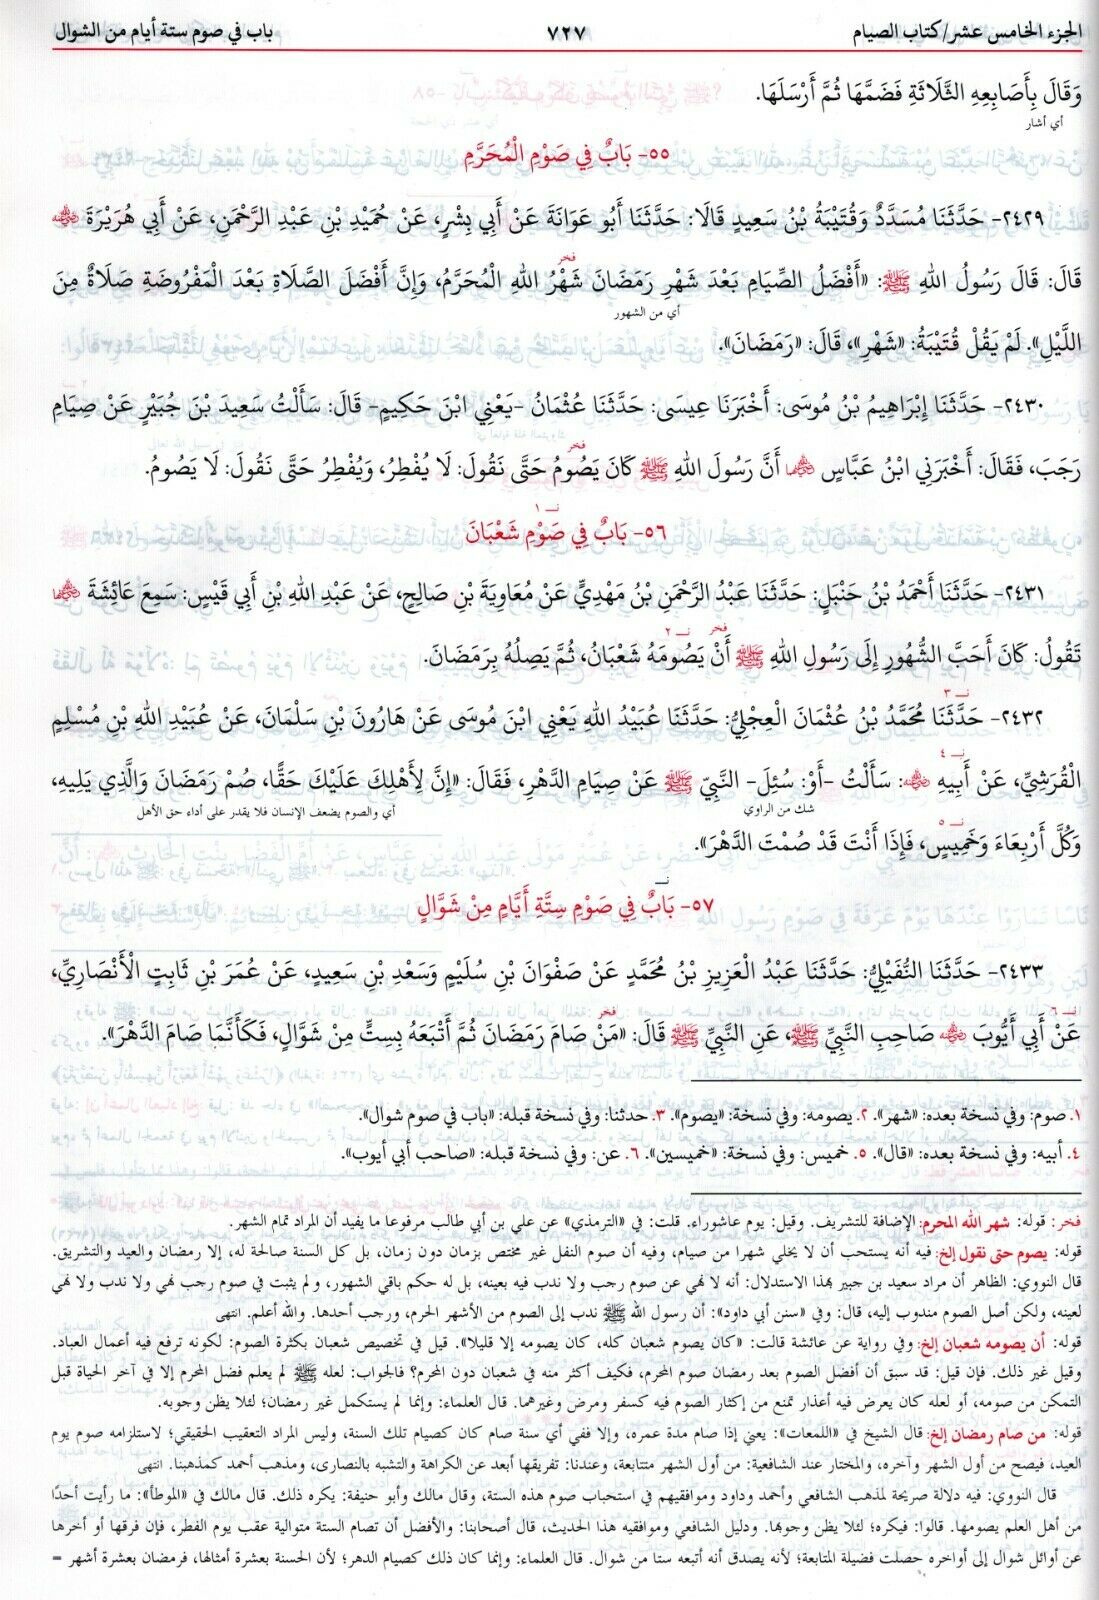 الجزء الخامس عشر/كتاب الصيام ٧٢٧ باب في صوم ستة أيام من الشوال
وَقَالَ بِأَصَابِعِهِ الثَّلَاثَةِ فَضَمَّهَا ثُمَّ أَرْسَلَهَا.
أي أشار
٥٥- بَابٌ فِي صَوْمِ الْمُحَرَّمِ
٢٤٢٩- حَدَّثَنَا مُسَدَّدٌ وَقُتَيْبَةُ بْنُ سَعِيدٍ قَالَا: حَدَّثَنَا أَبُو عَوَانَةَ عَنْ أَبِي بِشْرٍ، عَنْ حُمَيْدِ بْنِ عَبْدِ الرَّحْمَنِ، عَنْ أَبِي هُرَيْرَةَ ﵁
فخر
قَالَ: قَالَ رَسُولُ اللهِ ﷺ: «أَفْضَلُ الصِّيَامِ بَعْدَ شَهْرِ رَمَضَانَ شَهْرُ اللهِ الْمُحَرَّمُ، وَإِنَّ أَفْضَلَ الصَّلَاةِ بَعْدَ الْمَفْرُوضَةِ صَلَاةٌ مِنَ
أي من الشهور
اللَّيْلِ». لَمْ يَقُلْ قُتَيْبَةُ: «شَهْرِ»، قَالَ: «رَمَضَانَ».
٢٤٣٠- حَدَّثَنَا إِبْرَاهِيمُ بْنُ مُوسَى: أَخْبَرَنَا عِيسَى: حَدَّثَنَا عُثْمَانُ -يَعْنِي ابْنَ حَكِيمٍ- قَالَ: سَأَلْتُ سَعِيدَ بْنَ جُبَيْرٍ عَنْ صِيَامِ
فخر
رَجَبَ، فَقَالَ: أَخْبَرَنِي ابْنُ عَبَّاسٍ ﵄ أَنَّ رَسُولَ اللهِ ﷺ كَانَ يَصُومُ حَتَّى نَقُولَ: لَا يُفْطِرُ، وَيُفْطِرُ حَتَّى نَقُولَ: لَا يَصُومُ.
نـ ١
٥٦- بَابٌ فِي صَوْمِ شَعْبَانَ
٢٤٣١- حَدَّثَنَا أَحْمَدُ بْنُ حَنْبَلٍ: حَدَّثَنَا عَبْدُ الرَّحْمَنِ بْنُ مَهْدِيٍّ عَنْ مُعَاوِيَةَ بْنِ صَالِحٍ، عَنْ عَبْدِ اللهِ بْنِ أَبِي قَيْسٍ: سَمِعَ عَائِشَةَ ﵂
فخر نـ ٢
تَقُولُ: كَانَ أَحَبَّ الشُّهُورِ إِلَى رَسُولِ اللهِ ﷺ أَنْ يَصُومَهُ شَعْبَانُ، ثُمَّ يَصِلُهُ بِرَمَضَانَ.
نـ ٣
٢٤٣٢- حَدَّثَنَا مُحَمَّدُ بْنُ عُثْمَانَ الْعِجْلِيُّ: حَدَّثَنَا عُبَيْدُ اللهِ يَعْنِي ابْنَ مُوسَى عَنْ هَارُونَ بْنِ سَلْمَانَ، عَنْ عُبَيْدِ اللهِ بْنِ مُسْلِمٍ
نـ ٤
الْقُرَشِيِّ، عَنْ أَبِيهِ ﵁: سَأَلْتُ -أَوْ: سُئِلَ- النَّبِيّ ﷺ عَنْ صِيَامِ الدَّهْرِ، فَقَالَ: «إِنَّ لِأَهْلِكَ عَلَيْكَ حَقًّا، صُمْ رَمَضَانَ وَالَّذِي يَلِيهِ،
شك من الراوي أي والصوم يضعف الإنسان فلا يقدر على أداء حق الأهل
نـ ٥
وَكُلَّ أَرْبِعَاءَ وَخَمِيسٍ، فَإِذَا أَنْتَ قَدْ صُمْتَ الدَّهْرَ».
نـ
٥٧- بَابٌ فِي صَوْمِ سِتَّةِ أَيَّامٍ مِنْ شَوَّالٍ
٢٤٣٣- حَدَّثَنَا النُّفَيْلِيُّ: حَدَّثَنَا عَبْدُ الْعَزِيزِ بْنُ مُحَمَّدٍ عَنْ صَفْوَانَ بْنِ سُلَيْمٍ وَسَعْدِ بْنِ سَعِيدٍ، عَنْ عُمَرَ بْنِ ثَابِتٍ الْأَنْصَارِيِّ،
نـ ٦ فخر
عَنْ أَبِي أَيُّوبَ ﵁ صَاحِبِ النَّبِيِّ ﷺ، عَنِ النَّبِيِّ ﷺ قَالَ: «مَنْ صَامَ رَمَضَانَ ثُمَّ أَتْبَعَهُ بِسِتٍّ مِنْ شَوَّالٍ، فَكَأَنَّمَا صَامَ الدَّهْرَ».
١. صوم: وفي نسخة بعده: «شهر». ٢. يصومه: وفي نسخة: «يصوم». ٣. حدثنا: وفي نسخة قبله: «باب في صوم شوال».
٤. أبيه: وفي نسخة بعده: «قال». ٥. خميس: وفي نسخة: «خميسين». ٦. عن: وفي نسخة قبله: «صاحب أبي أيوب».
فخر: قوله: شهر الله المحرم: الإضافة للتشريف. وقيل: يوم عاشوراء. قلت: في «الترمذي» عن علي بن أبي طالب مرفوعا ما يفيد أن المراد تمام الشهر.
قوله: يصوم حتى نقول إلخ: فيه أنه يستحب أن لا يخلي شهرا من صيام، وفيه أن صوم النفل غير مختص بزمان دون زمان، بل كل السنة صالحة له، إلا رمضان والعيد والتشريق.
قال النووي: الظاهر أن مراد سعيد بن جبير بهذا الاستدلال: أنه لا نهي عن صوم رجب ولا ندب فيه بعينه، بل له حكم باقي الشهور، ولم يثبت في صوم رجب نهي ولا ندب ولا نهي
لعينه، ولكن أصل الصوم مندوب إليه، قال: وفي «سنن أبي داود»: أن رسول الله ﷺ ندب إلى الصوم من الأشهر الحرم، ورجب أحدها. والله أعلم. انتهى
قوله: أن يصومه شعبان إلخ: وفي رواية عن عائشة قالت: «كان يصوم شعبان كله، كان يصومه إلا قليلا». قيل في تخصيص شعبان بكثرة الصوم: لكونه ترفع فيه أعمال العباد.
وقيل غير ذلك. فإن قيل: قد سبق أن أفضل الصوم بعد رمضان صوم المحرم، فكيف أكثر منه في شعبان دون المحرم؟ فالجواب: لعله ﷺ لم يعلم فضل المحرم إلا في آخر الحياة قبل
التمكن من صومه، أو لعله كان يعرض فيه أعذار تمنع من إكثار الصوم فيه كسفر ومرض وغيرهما. قال العلماء: وإنما لم يستكمل غير رمضان؛ لئلا يظن وجوبه.
قوله: من صام رمضان إلخ: قال الشيخ في «اللمعات»: يعني إذا صام مدة عمره، وإلا ففي أي سنة صام كان كصيام تلك السنة، وليس المراد التعقيب الحقيقي؛ لاستلزامه صوم يوم
العيد، فيصح من أول الشهر وآخره، والمختار عند الشافعية: من أول الشهر متتابعة، وعندنا: تفريقها أبعد عن الكراهة والتشبه بالنصارى، ومذهب أحمد كمذهبنا. انتهى
قال النووي: فيه دلالة صريحة لمذهب الشافعي وأحمد وداود وموافقيهم في استحباب صوم هذه الستة، وقال مالك وأبو حنيفة: يكره ذلك. قال مالك في «الموطأ»: ما رأيت أحدًا
من أهل العلم يصومها. قالوا: فيكره؛ لئلا يظن وجوبها. ودليل الشافعي وموافقيه هذا الحديث، قال أصحابنا: والأفضل أن تصام الستة متوالية عقب يوم الفطر، فإن فرقها أو أخرها
عن أوائل شوال إلى أواخره حصلت فضيلة المتابعة؛ لأنه يصدق أنه أتبعه ستا من شوال. قال العلماء: وإنما كان ذلك كصيام الدهر؛ لأن الحسنة بعشرة أمثالها، فرمضان بعشرة أشهر =